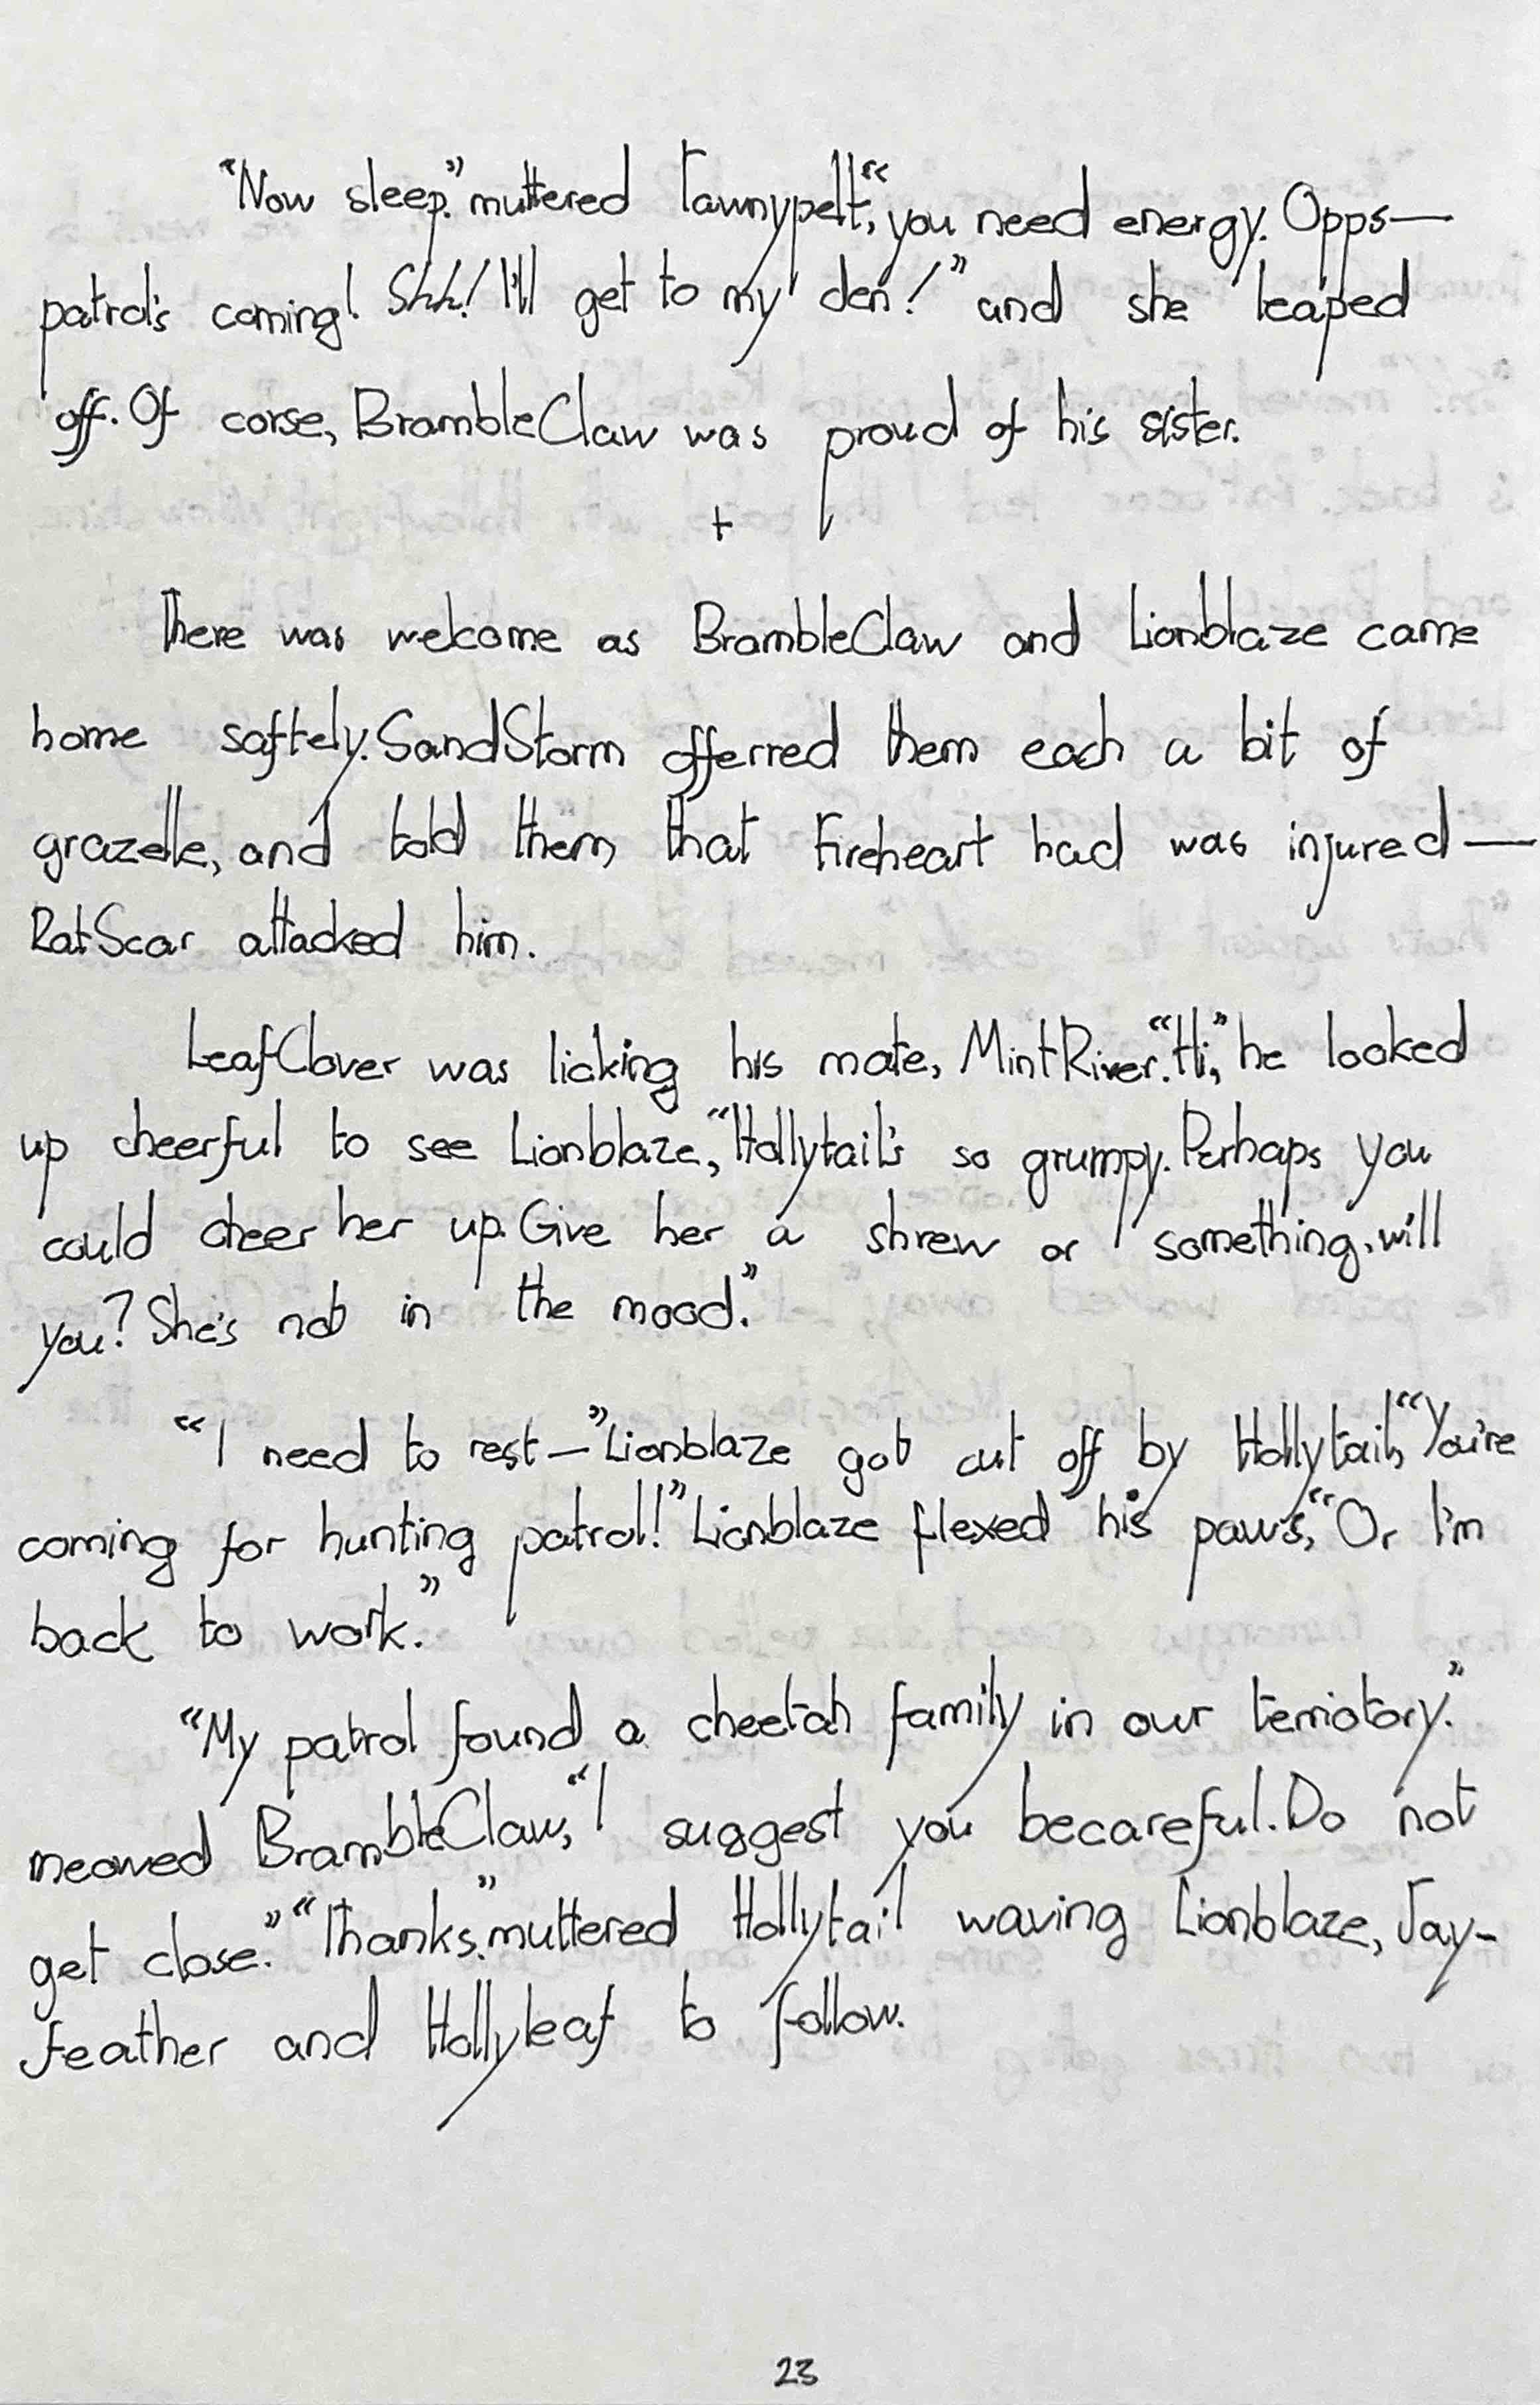 "Now sleep." muttered Tawnypelt, "you need energy. Opps—
patrol's coming! Shh! I'll get to my den!" and she leaped
off. Of corse, BrambleClaw was proud of his sister.
+
There was welcome as BrambleClaw and Lionblaze came
home saftely. SandStorm offerred them each a bit of
grazelle, and told them that Fireheart had was injured—
RatScar attacked him.
LeafClover was licking his mate, MintRiver. "Hi," he looked
up cheerful to see Lionblaze, "Hollytail's so grumpy. Perhaps you
could cheer her up. Give her a shrew or something, will
you? She's not in the mood."
"I need to rest—" Lionblaze got cut off by Hollytail, "You're
coming for hunting patrol!" Lionblaze flexed his paws, "Or I'm
back to work."
"My patrol found a cheetah family in our terriotory."
meowed BrambleClaw, "I suggest you becareful. Do not
get close." "Thanks." muttered Hollytail waving Lionblaze, Jay-
Feather and Hollyleaf to follow.
23